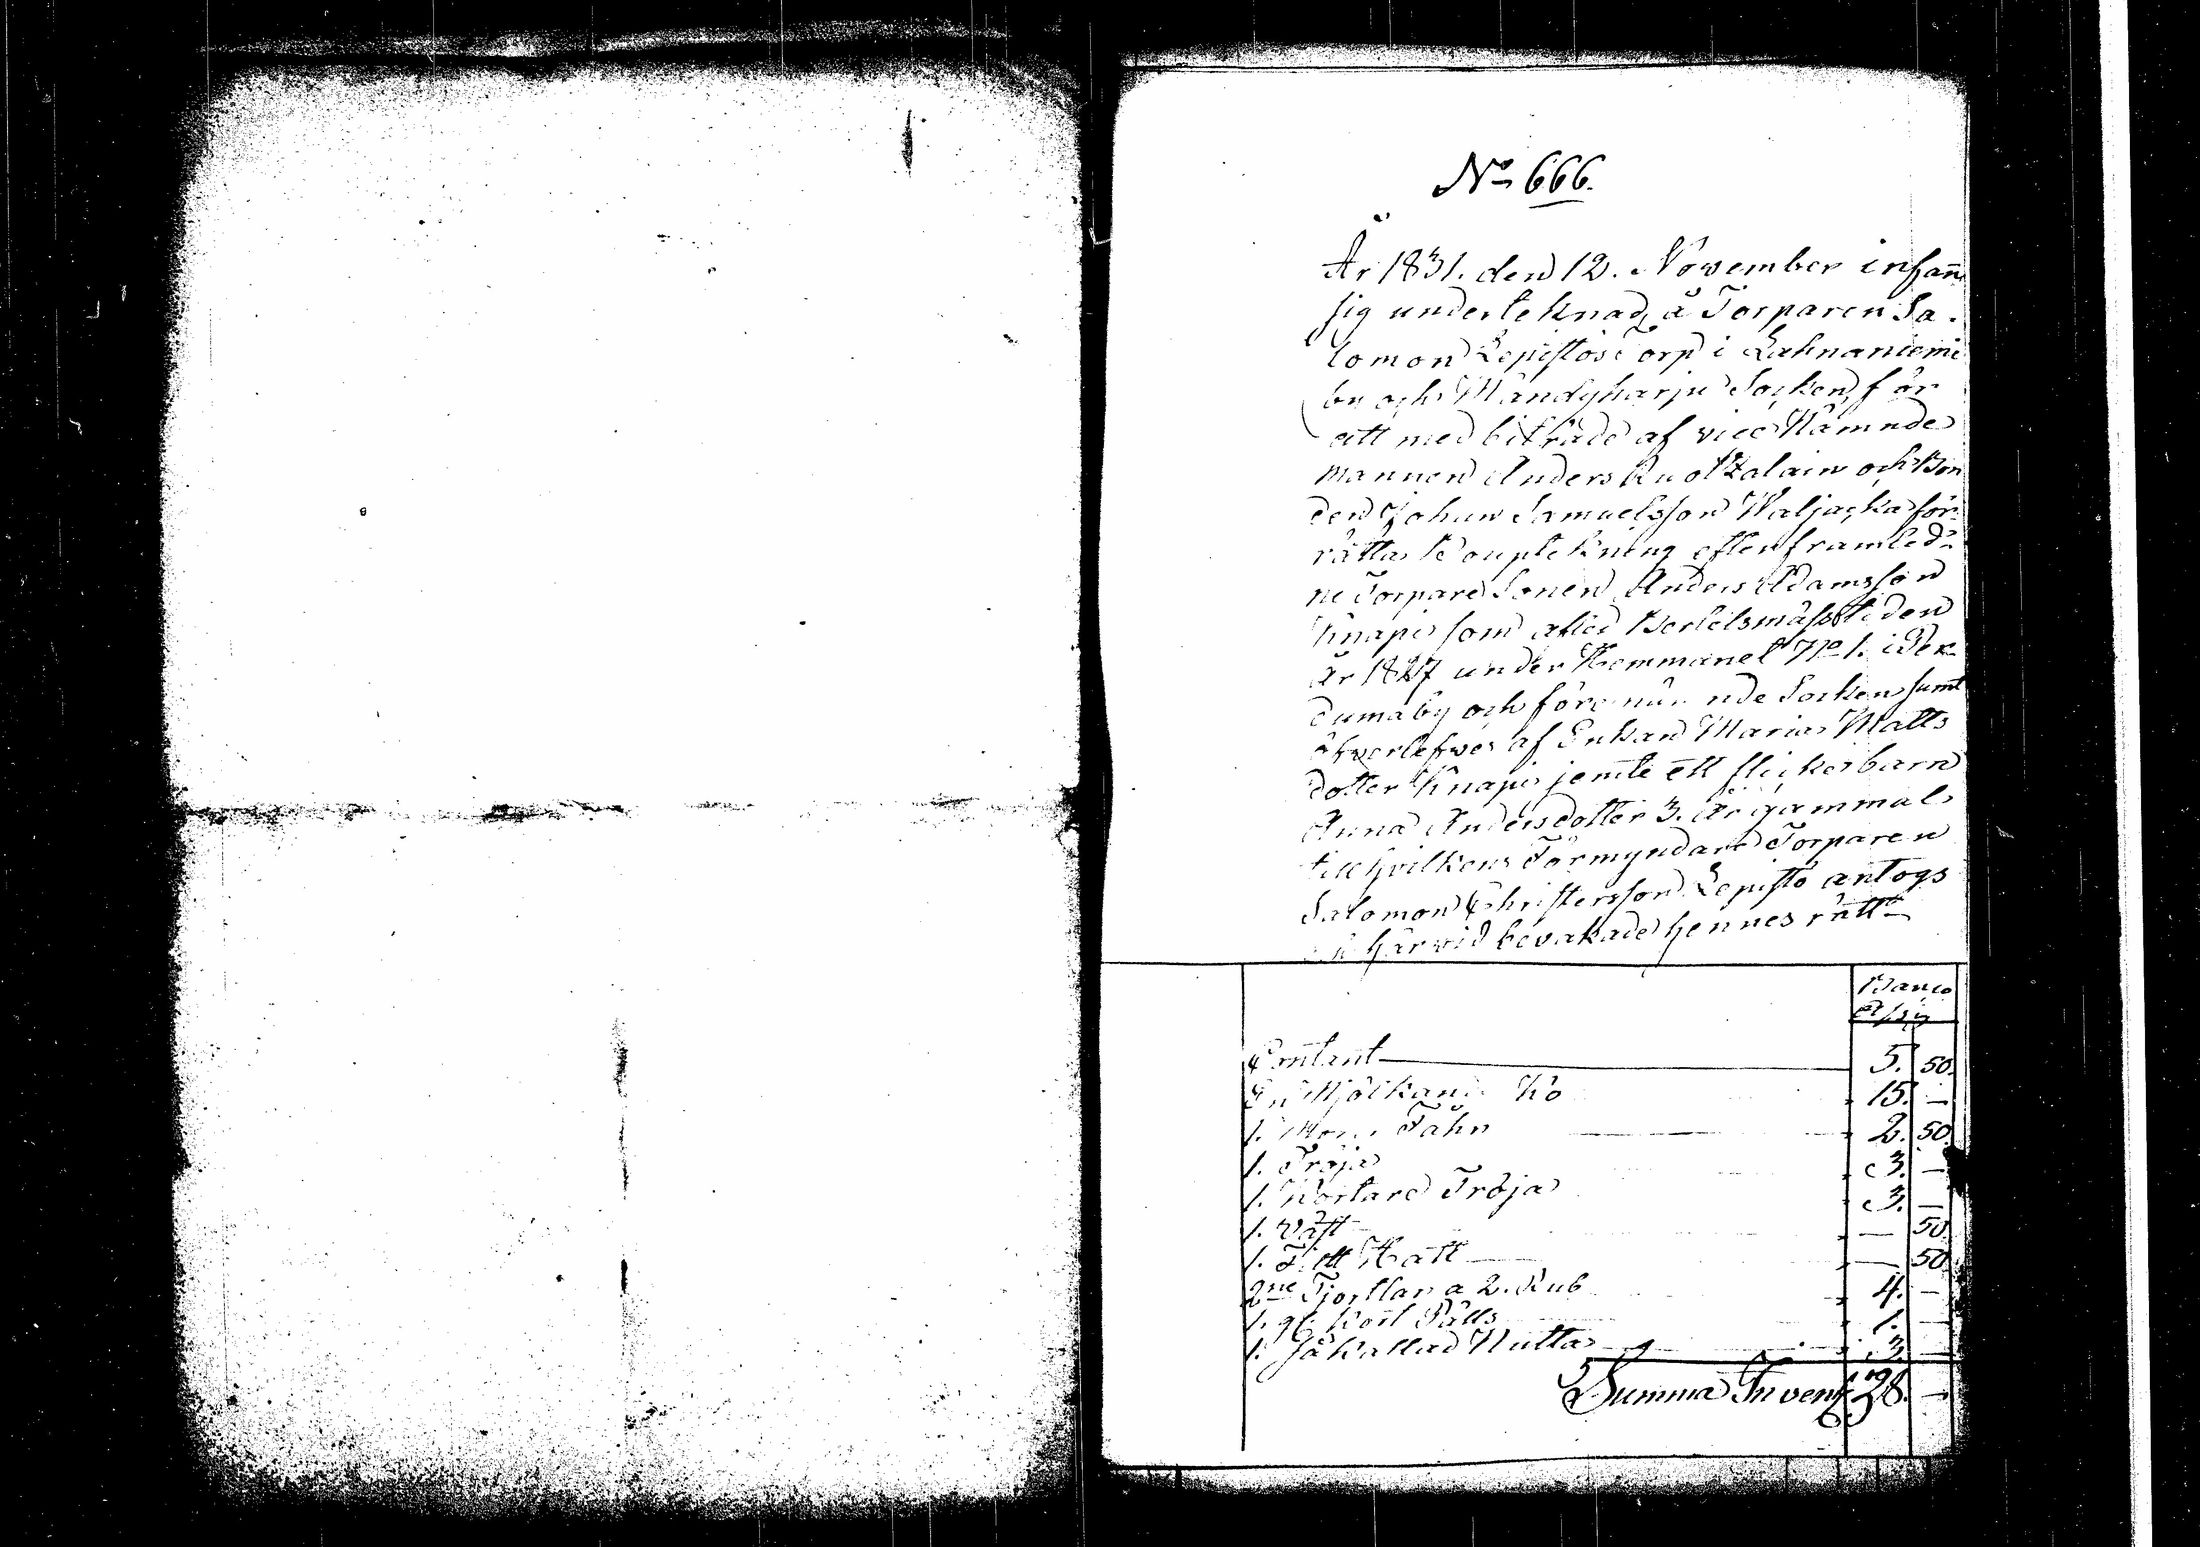 No 666.
År 1831. den 12. November infann
sig underteknad, å Torparen Sa-
lomon Lepistös Torp i Lahnaniemi
by och Mändyharju Socken för
att med biträde af vice Nämnde
mannen Anders Ruotzalain och Bon
den Johan Samuelsson Waljacka för
rätta Bouptekning efter framled-
ne Torpare Sonen Anders Adamsson
Knapi som afled Bertelsmässtiden
År 1827 under Hemmanet No 1. i Per-
dumaby och förenämnde Socken samt
öfverlefves af Enkan Maria Matts
dotter Knapi jemte ett flickebarn
Anna Andersdotter 3. År gammal
till hvilkens Förmyndare Torparen
Salomon Christersson Lepistö antogs
härvid bevakade hennes rätt
Banco
Contant 5. 50.
En Mjölkande Ko 15. —
1. Fåhn 2. 50.
1. Tröja 3. —
1. Kortare Tröja 3. —
1. Väst — 50
1. Hatt — 50
2ne Tjortlar a 2. Rub 4. —
1. gl. Kort Pälls 1. —
1. så kallad Nutta 3. —
Summa Invent. 38. —